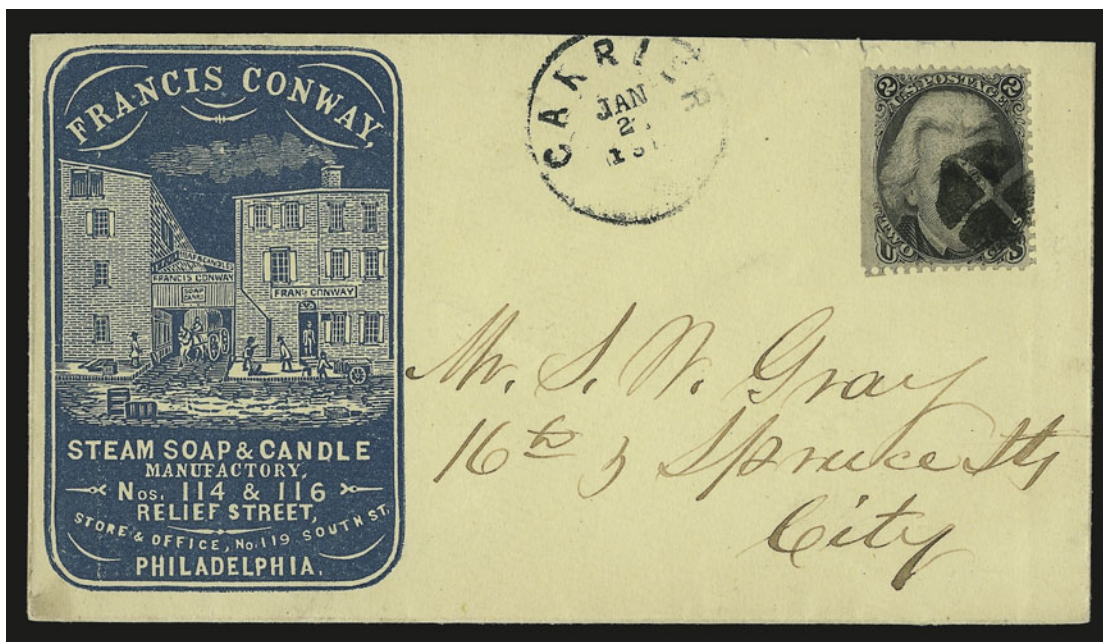 FRANCIS CONWAY,
SOAP & CANDLE
FRANCIS CONWAY
SOAP
FRANs. CONWAY
STEAM SOAP & CANDLE
MANUFACTORY,
Nos. 114 & 116
RELIEF STREET,
STORE & OFFICE, No. 119 SOUTH ST.
PHILADELPHIA.
CARRIER
JAN
2
2 U.S. POSTAGE 2
TWO
Mr. S. W. Gray
16th & Spruce Sts
City